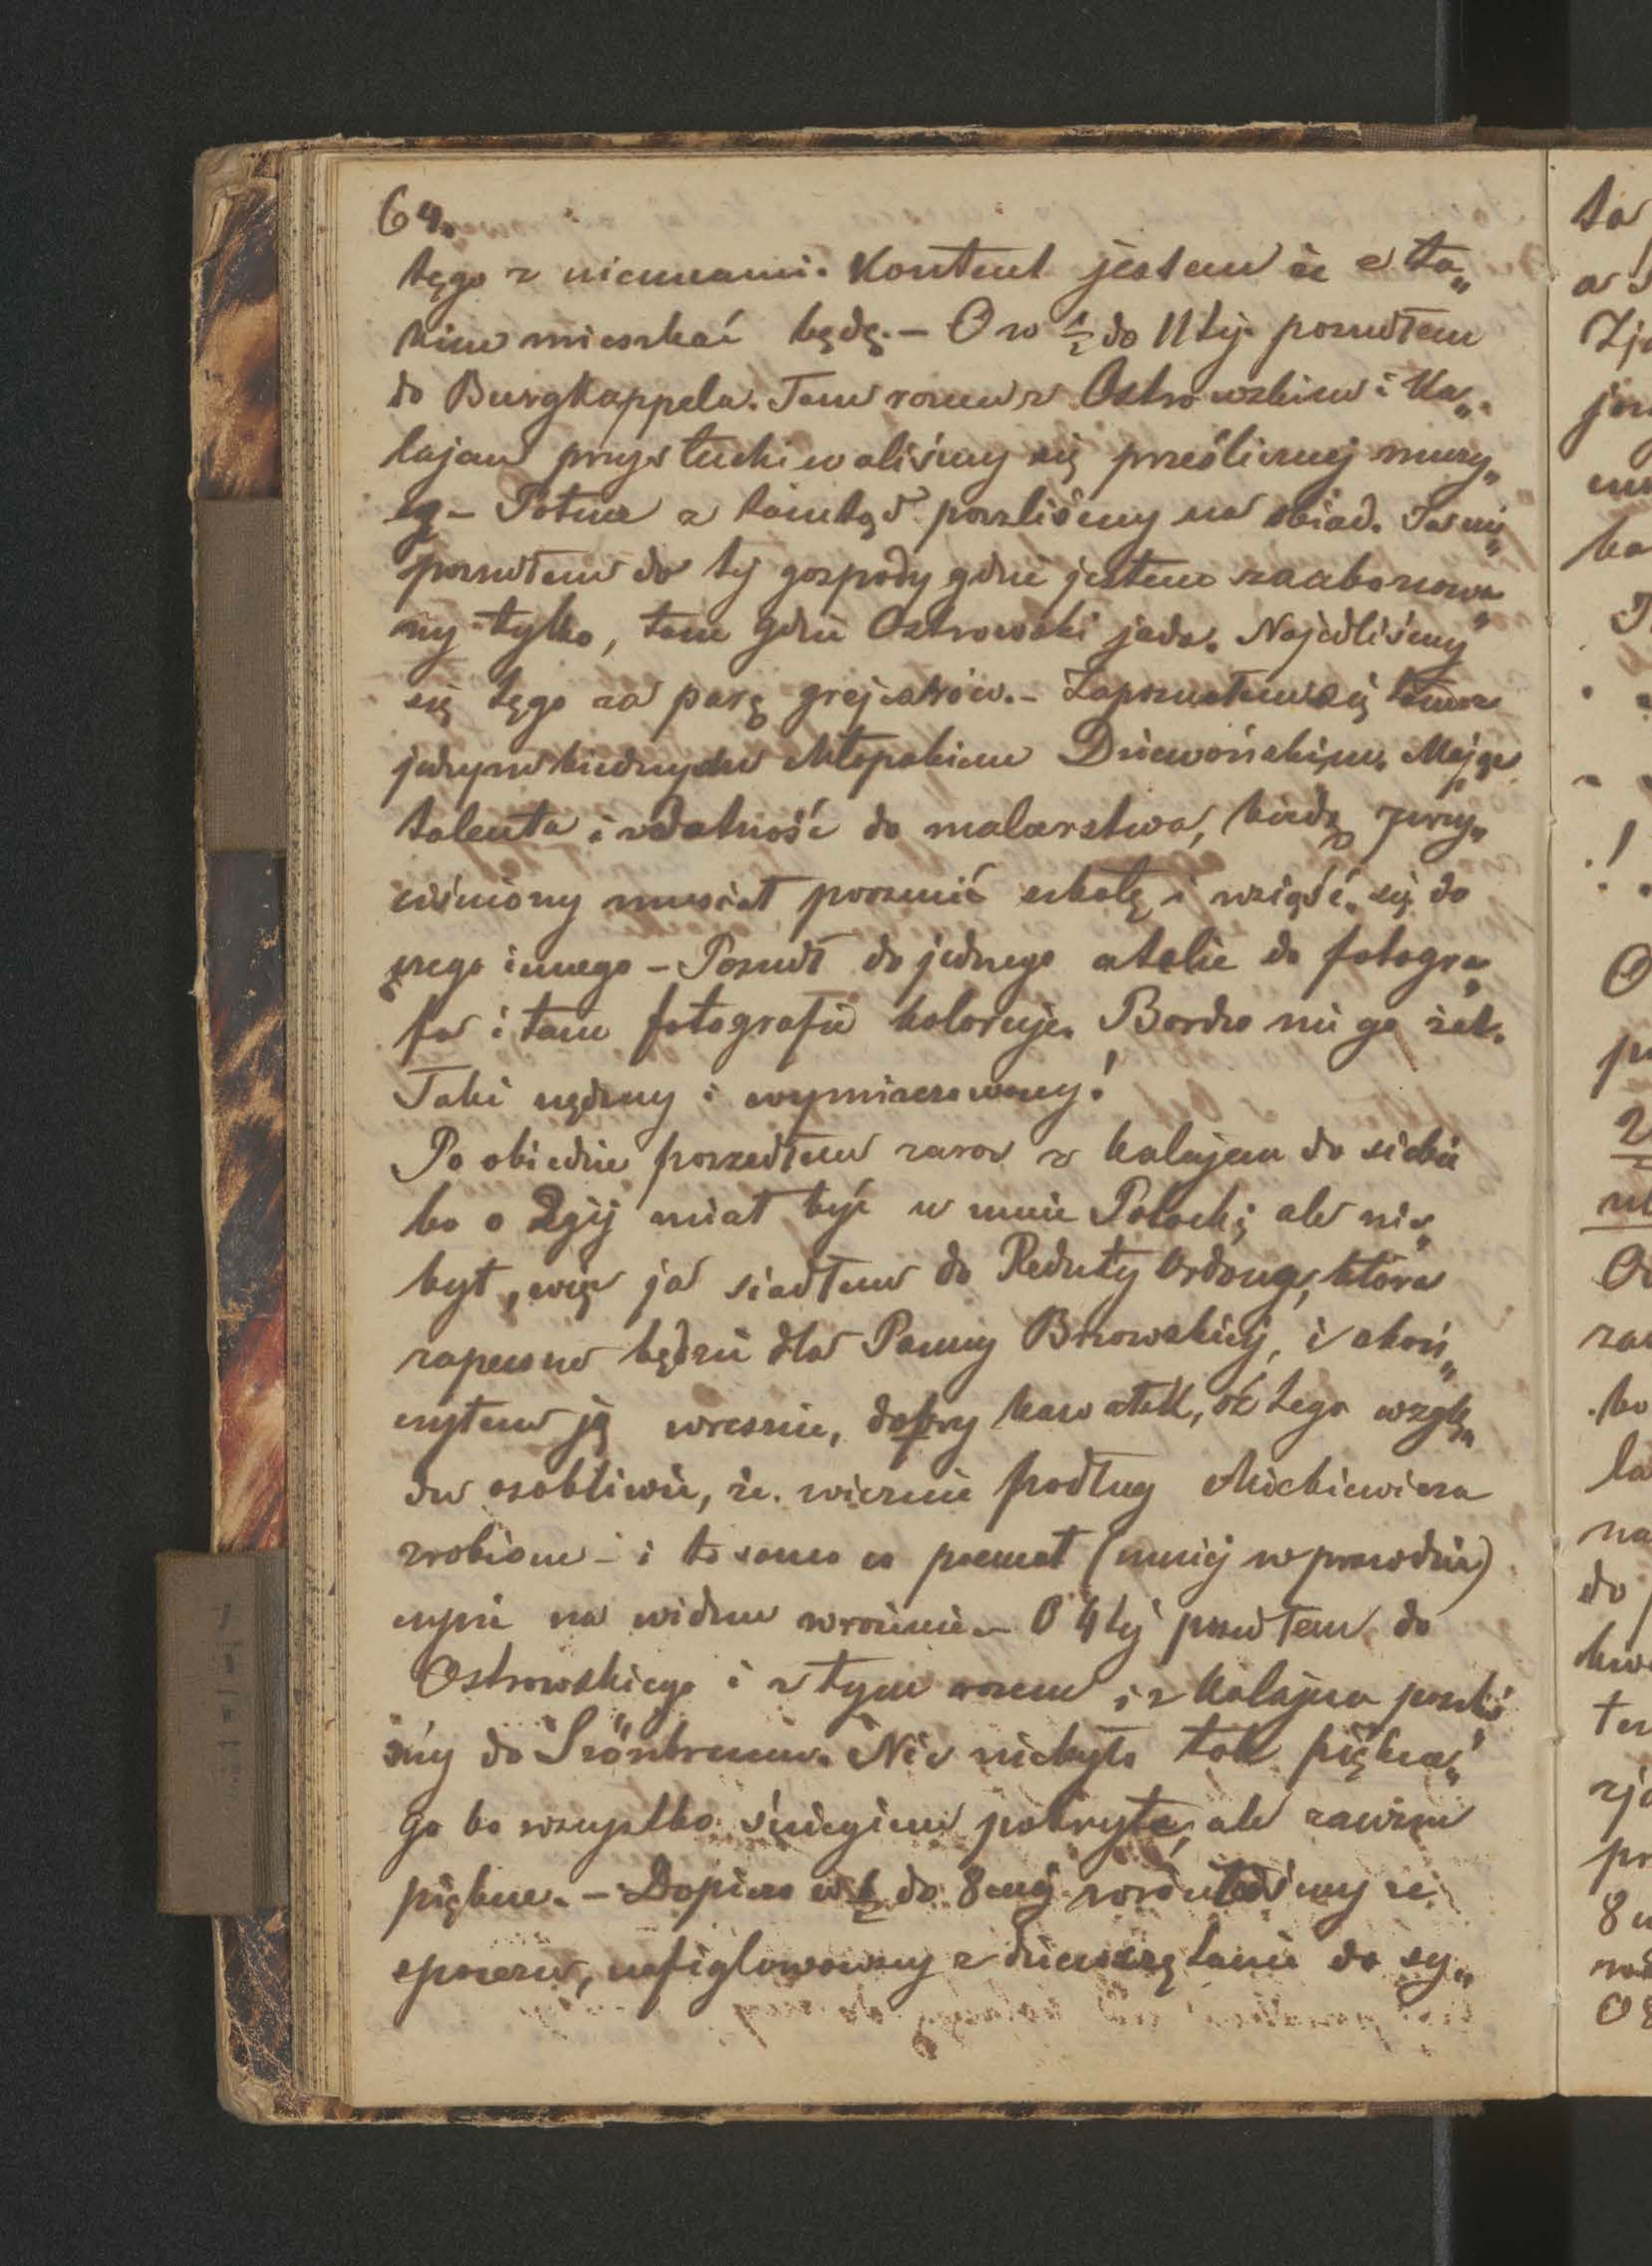 64.
tęgo z niemcami. Kontent jestem że z ta„
kim mieszkać będę. – O w ½ do 11tej poszedłem
do Burgkappela. Tam razem z Ostrowskim i Ka„
lajem przysłuchiwaliśmy się prześlicznej muzy„
cę – Potem z tamtąd poszliśmy na obiad. Ja nie„
poszedłem do tej gospody gdzie jestem zaabonowa„
ny tylko, tam gdzie Ostrowski jada. Najedliśmy
się tęgo za parę grejcarów. – Zapoznałem się tam z
jednym biednym chłopakiem Dziewońskim. Mając
talenta i zdatność do malarstwa, biedą przy„
ciśniony musiał porzucić szkołę i wziąść się do
czego innego – Poszedł do jednego atelie do fotogra„
fa i tam fotografie koloruje. Bardzo mi go żal.
Taki nędzny i wymizerowany!
Po obiedzie poszedłem zaraz z Kalajem do siebie
bo o 2giej miał być u mnie Potocki; ale nie„
był, więc ja siadłem do Reduty Ordona, która
zapewne będzie dla Panny Brzowskiej, i skoń„
czyłem ją wreszcie, dobry kawałek, z tego wzglę„
du osobliwie, że wiernie podług Mickiewicza
zrobione – i to samo co poemat (mniej wprawdzie)
czyni na widzu wrażenie – O 4tej poszedłem do
Ostrowskiego i z tym razem i z Kalajem poszli
śmy do Szönbrunu. Nic niebyło tak piękne„
go bo wszystko śniegiem pokryte, ale zawsze
piękne. – Dopiero w ½ do 8mej wróciliśmy ze
spaceru, nafiglowawszy z dziewczętami do sy„